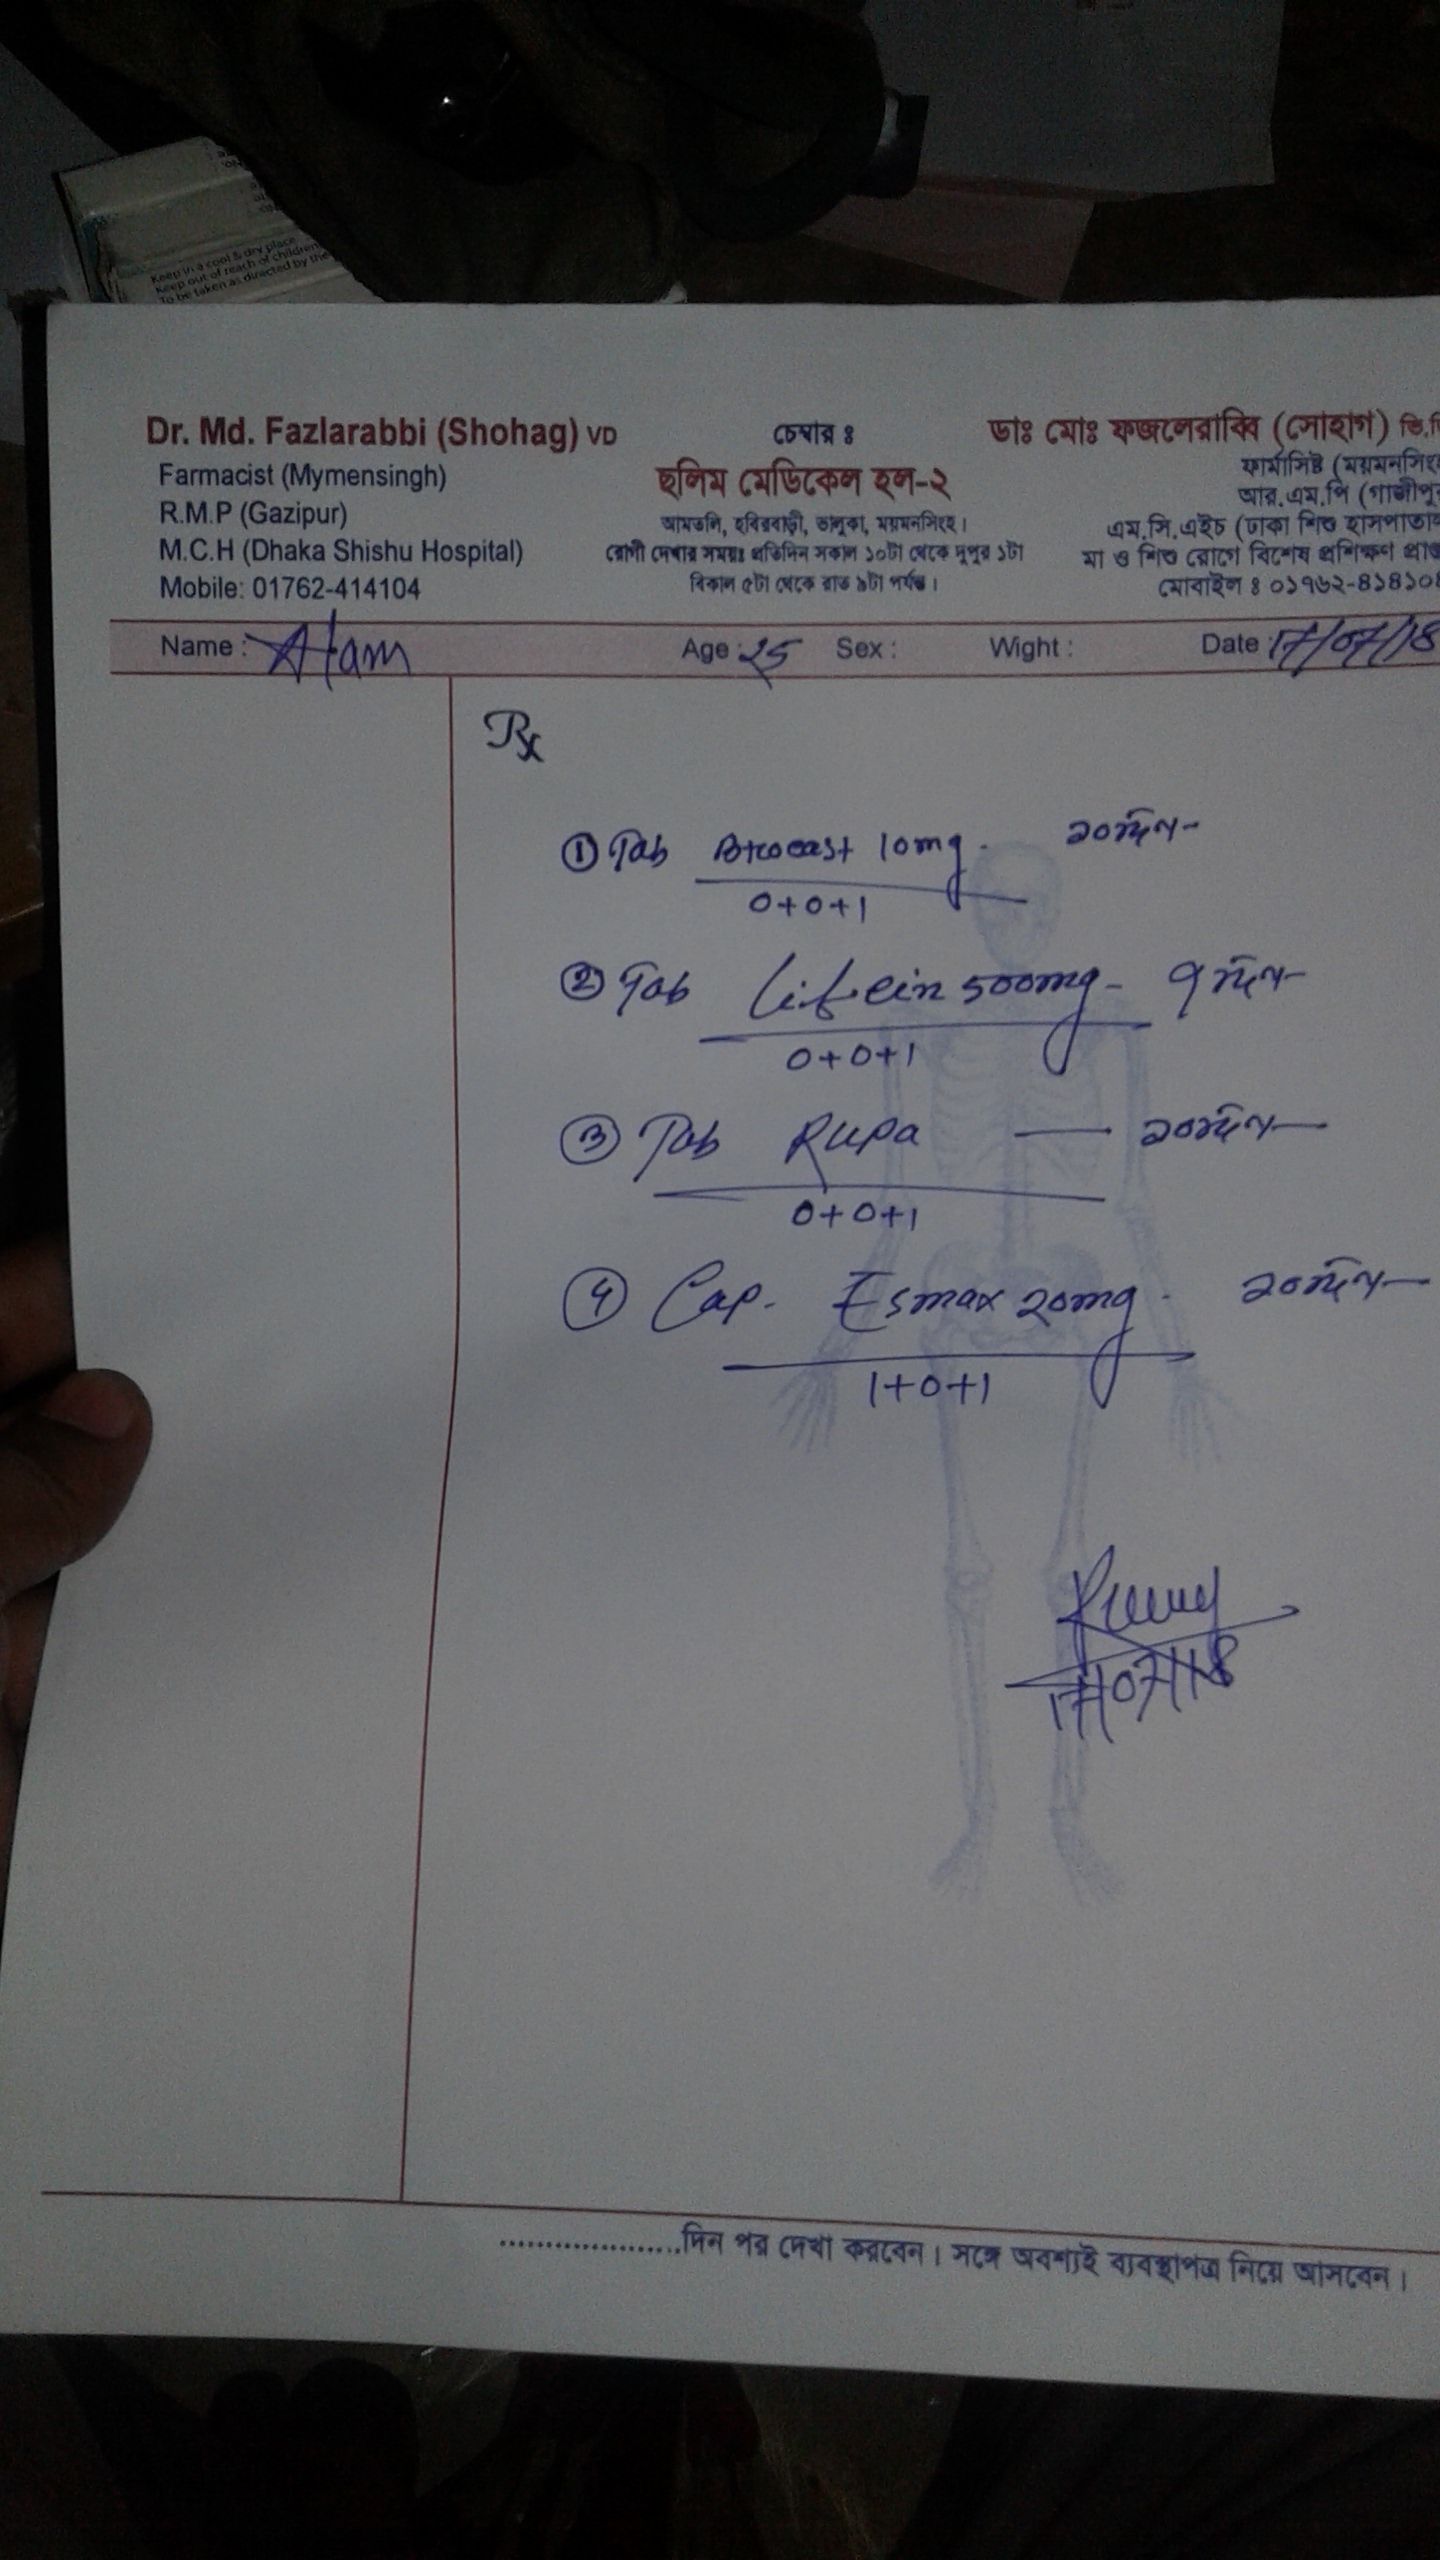 Keep in a cool & dry place
Keep out of reach of children
To be taken as directed by the
Dr. Md. Fazlarabbi (Shohag) VD
Farmacist (Mymensingh)
R.M.P (Gazipur)
M.C.H (Dhaka Shishu Hospital)
Mobile: 01762-414104
চেম্বার ঃ
ছলিম মেডিকেল হল-২
আমতলি, হবিরবাড়ী, ভালুকা, ময়মনসিংহ।
রোগী দেখার সময়ঃ প্রতিদিন সকাল ১০টা থেকে দুপুর ১টা
বিকাল ৫টা থেকে রাত ৯টা পর্যন্ত।
ডাঃ মোঃ ফজলেরাব্বি (সোহাগ)
ফার্মাসিষ্ট (ময়মনসিংহ
আর.এম.পি (গাজীপুর
এম.সি.এইচ (ঢাকা শিশু হাসপাতাল
মা ও শিশু রোগে বিশেষ প্রশিক্ষণ প্রাপ্ত
মোবাইল ঃ ০১৭৬২-৪১৪১০৪
Name : Alam Age : 25 Sex : Wight : Date : 17/07/18
Rx
① Tab 10mg. ২০দিন-
0+0+1
② Tab 500mg- ৭দিন-
0+0+1
③ Tab Rupa — ২০দিন-
0+0+1
④ Cap. Esmax 20mg. ২০দিন-
1+0+1
17/07/18
....................দিন পর দেখা করবেন। সঙ্গে অবশ্যই ব্যবস্থাপত্র নিয়ে আসবেন।